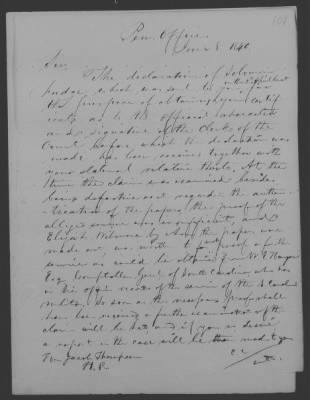 Pen. Office
June 8, 1840
Sir,
The declaration of Solomon
Judge, which was sent to you for
the purpose of obtaining your certif
icate as to the official character
and signature of the Clerk of the
Court before which the declaration was
made has been received together with
your statement relative thereto. At the
time the claim was examined beside
being defective as it regards the authen
tication of the papers, the proof of the
alleged service was insufficient, and
Elijah by whom the papers were
made out, was written to for such proof of the
service as could be obtained from
Esq Comptroller Genl of South Carolina, who has
in his office records of the service of the S Carolina
Militia. As soon as the necessary proof shall
have been received a further examination of the
claim will be had and if you so desire
a report in the case will be made to you
Hon Jacob Thompson
H. R.